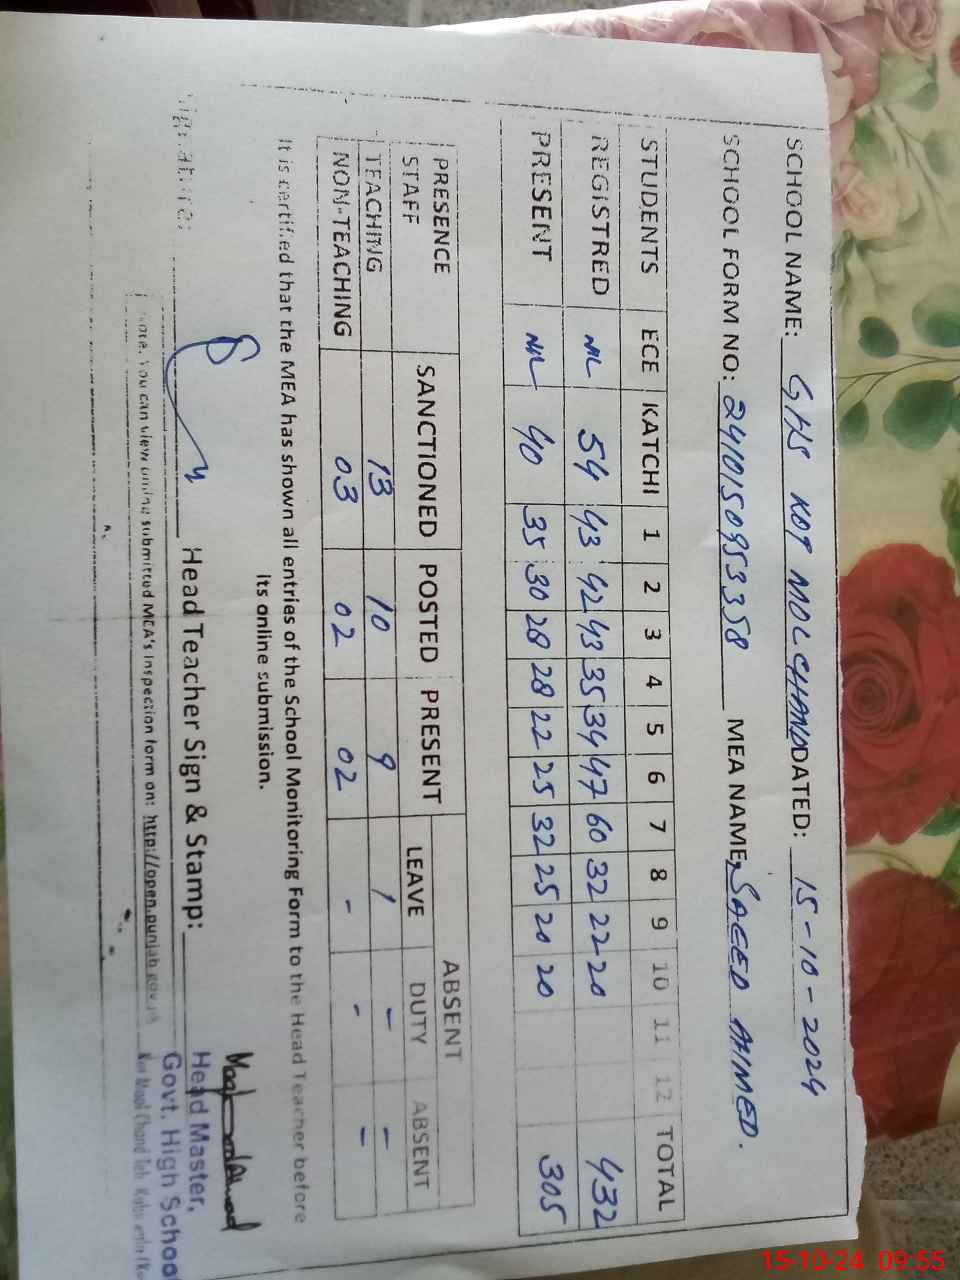 SCHOOL NAME: GHS KOT MOLCHAND DATED: 15-10-2024
SCHOOL FORM NO: 2410150953358 MEA NAME: SAEED AHMED.
STUDENTS ECE KATCHI 1 2 3 4 5 6 7 8 9 10 11 12 TOTAL
REGISTRED NIL 54 43 42 43 35 34 47 60 32 22 20 432
PRESENT NIL 40 35 30 28 28 22 25 32 25 20 20 305
PRESENCE STAFF SANCTIONED POSTED PRESENT ABSENT
LEAVE DUTY ABSENT
TEACHING 13 10 9 1 - -
NON-TEACHING 03 02 02 - - -
It is certified that the MEA has shown all entries of the School Monitoring Form to the Head Teacher before
its online submission.
Signature: Head Teacher Sign & Stamp:
Head Master,
Govt. High School
Note: You can view online submitted MEA's Inspection form on: http://open.punjab.gov.pk
Kot Mool Chand Teh.
15-10-24 09:55